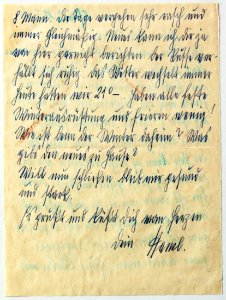 8 Mann. Die Tage vergehen sehr rasch und
immer Gleichmäßig. Neues kann ich Dir ja
von hier garnicht berichten der Russe ver-
hält sich ruhig. Das Wetter wechselt immer
heute hatten wir 21°– haben alle feste
Winterausrüstung und frieren wenig
Wie ist denn der Winter daheim? Was
gebt's den neues zu Hause?
Will nun schließen bleib mir gesund
und stark.
Es grüßt und küßt Dich von Herzen
dein